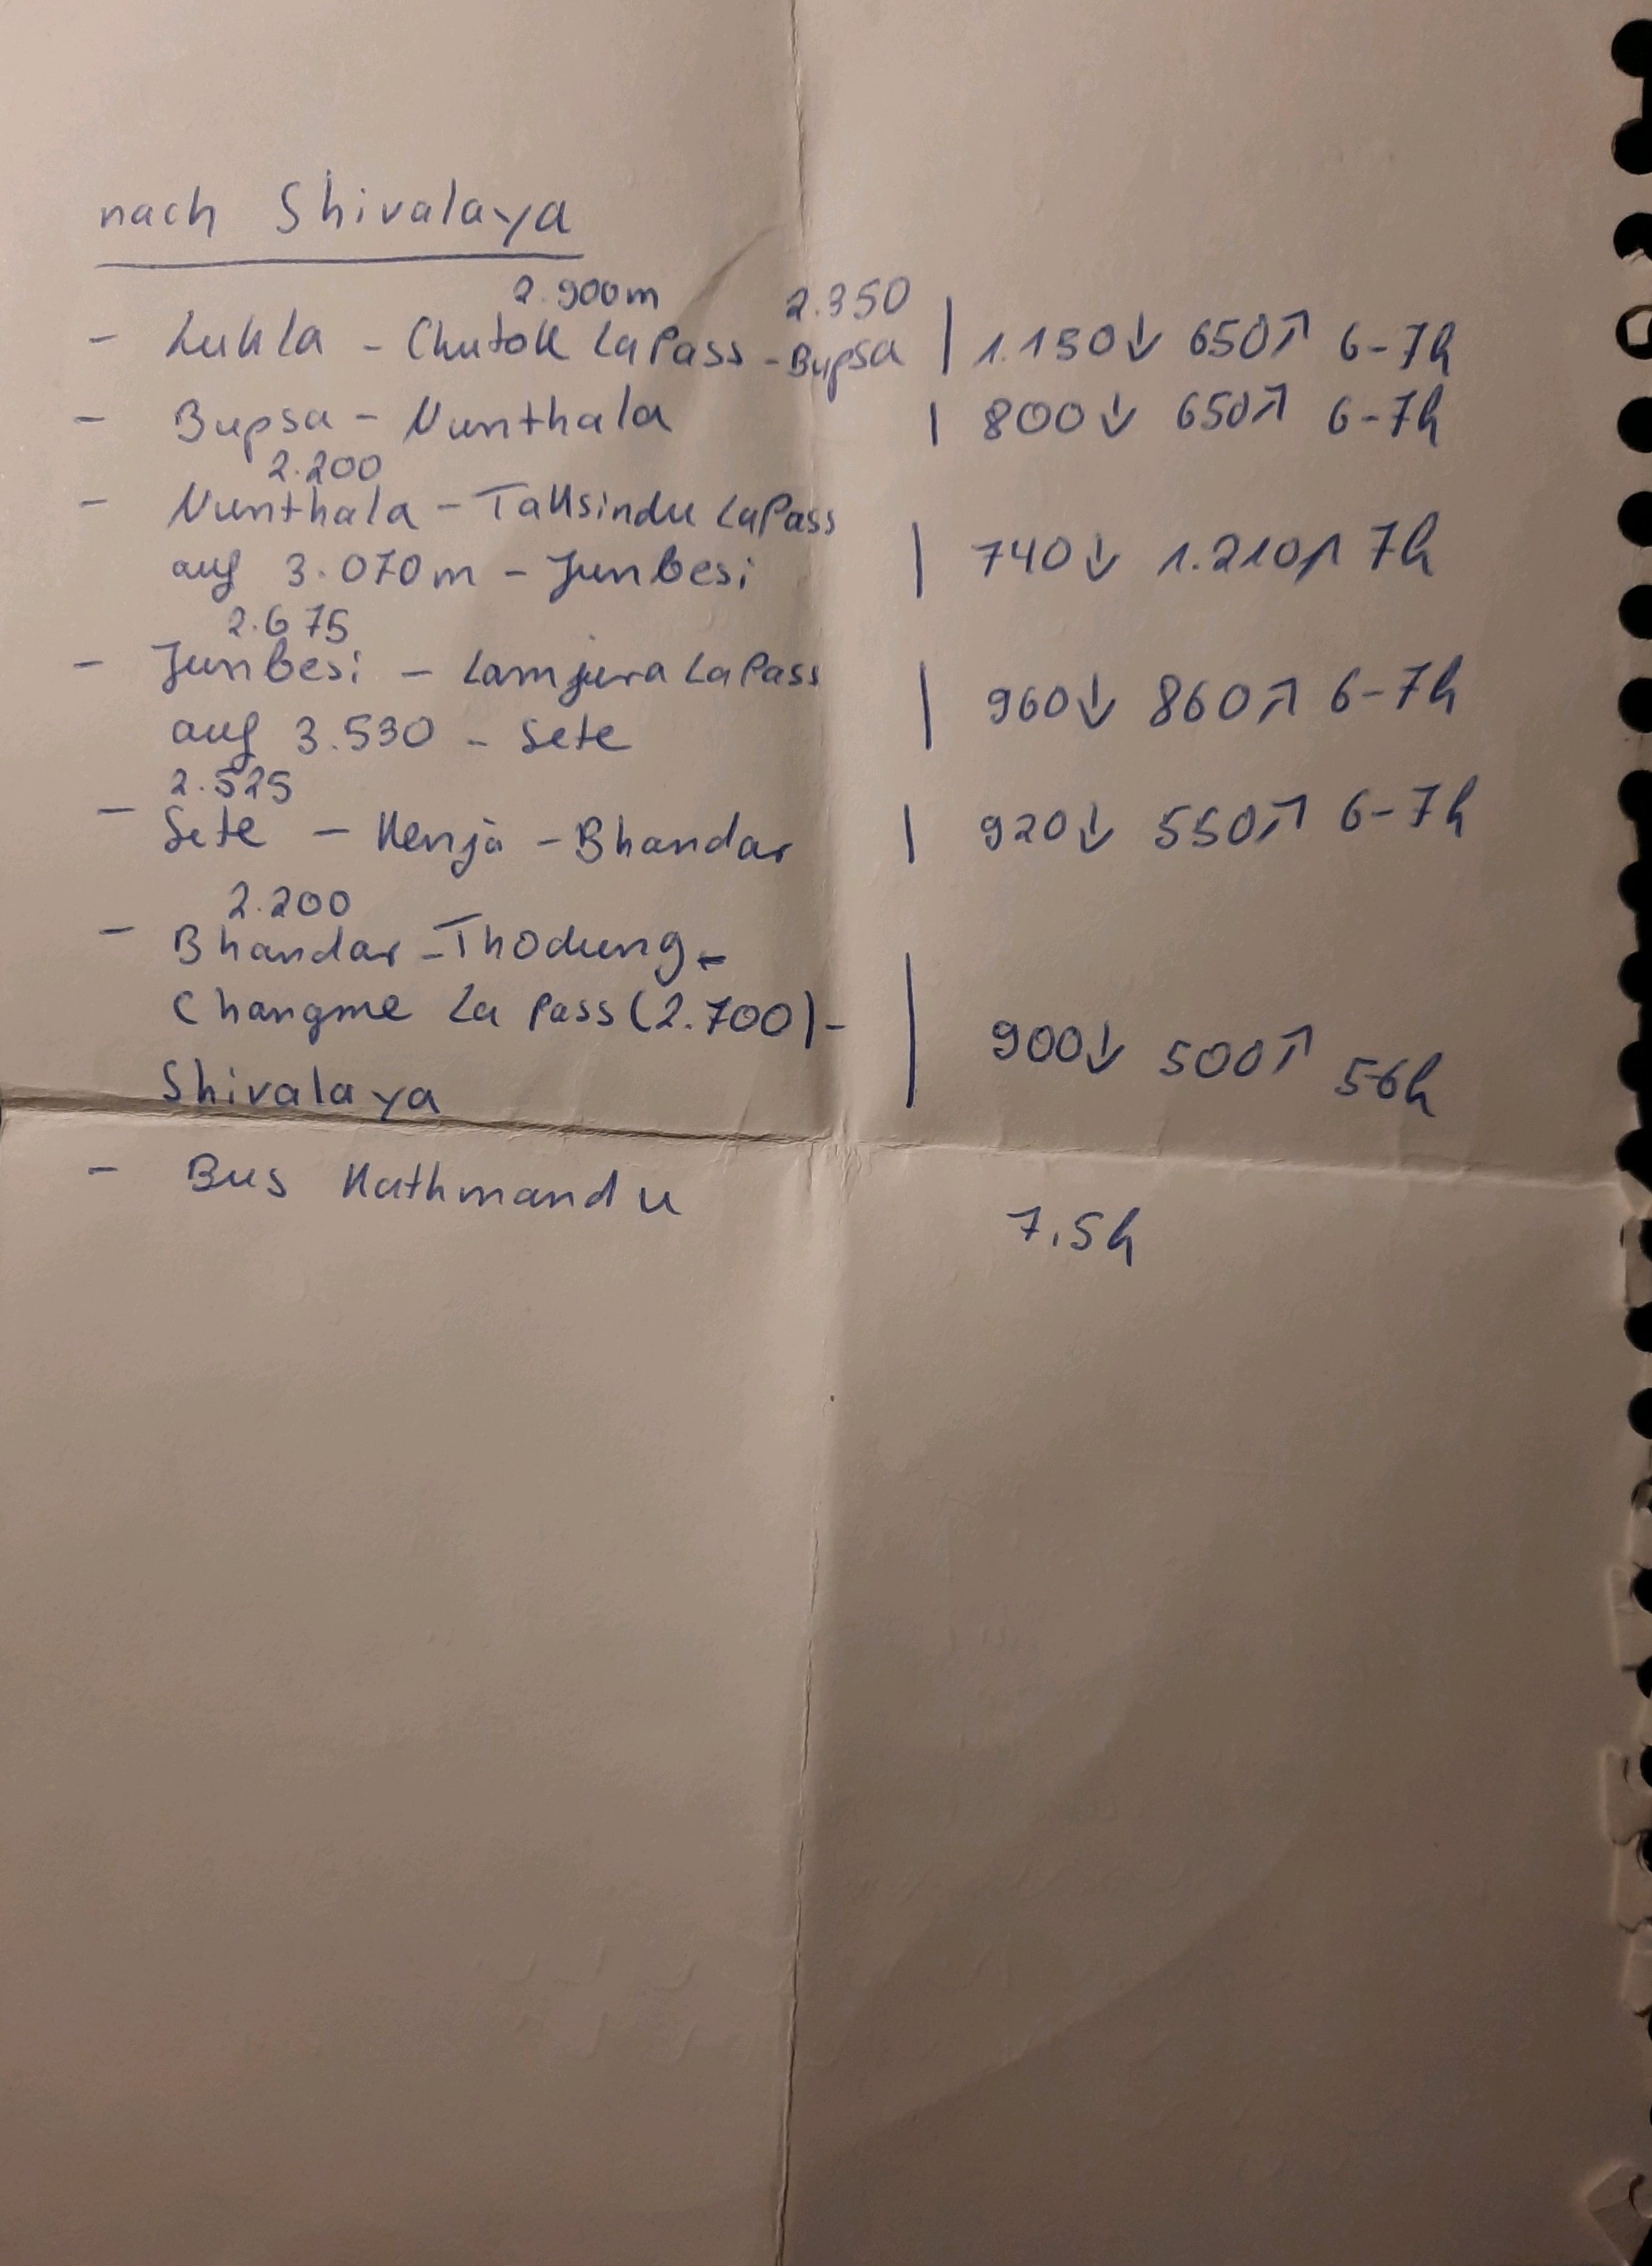 nach Shivalaya
2.900m 2.350
- Lukla - Chutok La Pass - Bupsa | 1.150↓ 650↗ 6-7h
- Bupsa - Nunthala | 800↓ 650↗ 6-7h
2.200
- Nunthala - Taksindu La Pass
auf 3.070m - Junbesi | 740↓ 1.210↗ 7h
2.675
- Junbesi - Lamjura La Pass
auf 3.530 - Sete | 960↓ 860↗ 6-7h
2.525
- Sete - Kenja - Bhandar | 920↓ 550↗ 6-7h
2.200
- Bhandar - Thodung -
Changme La Pass (2.700) - | 900↓ 500↗ 5-6h
Shivalaya
- Bus Kathmandu 7,5h